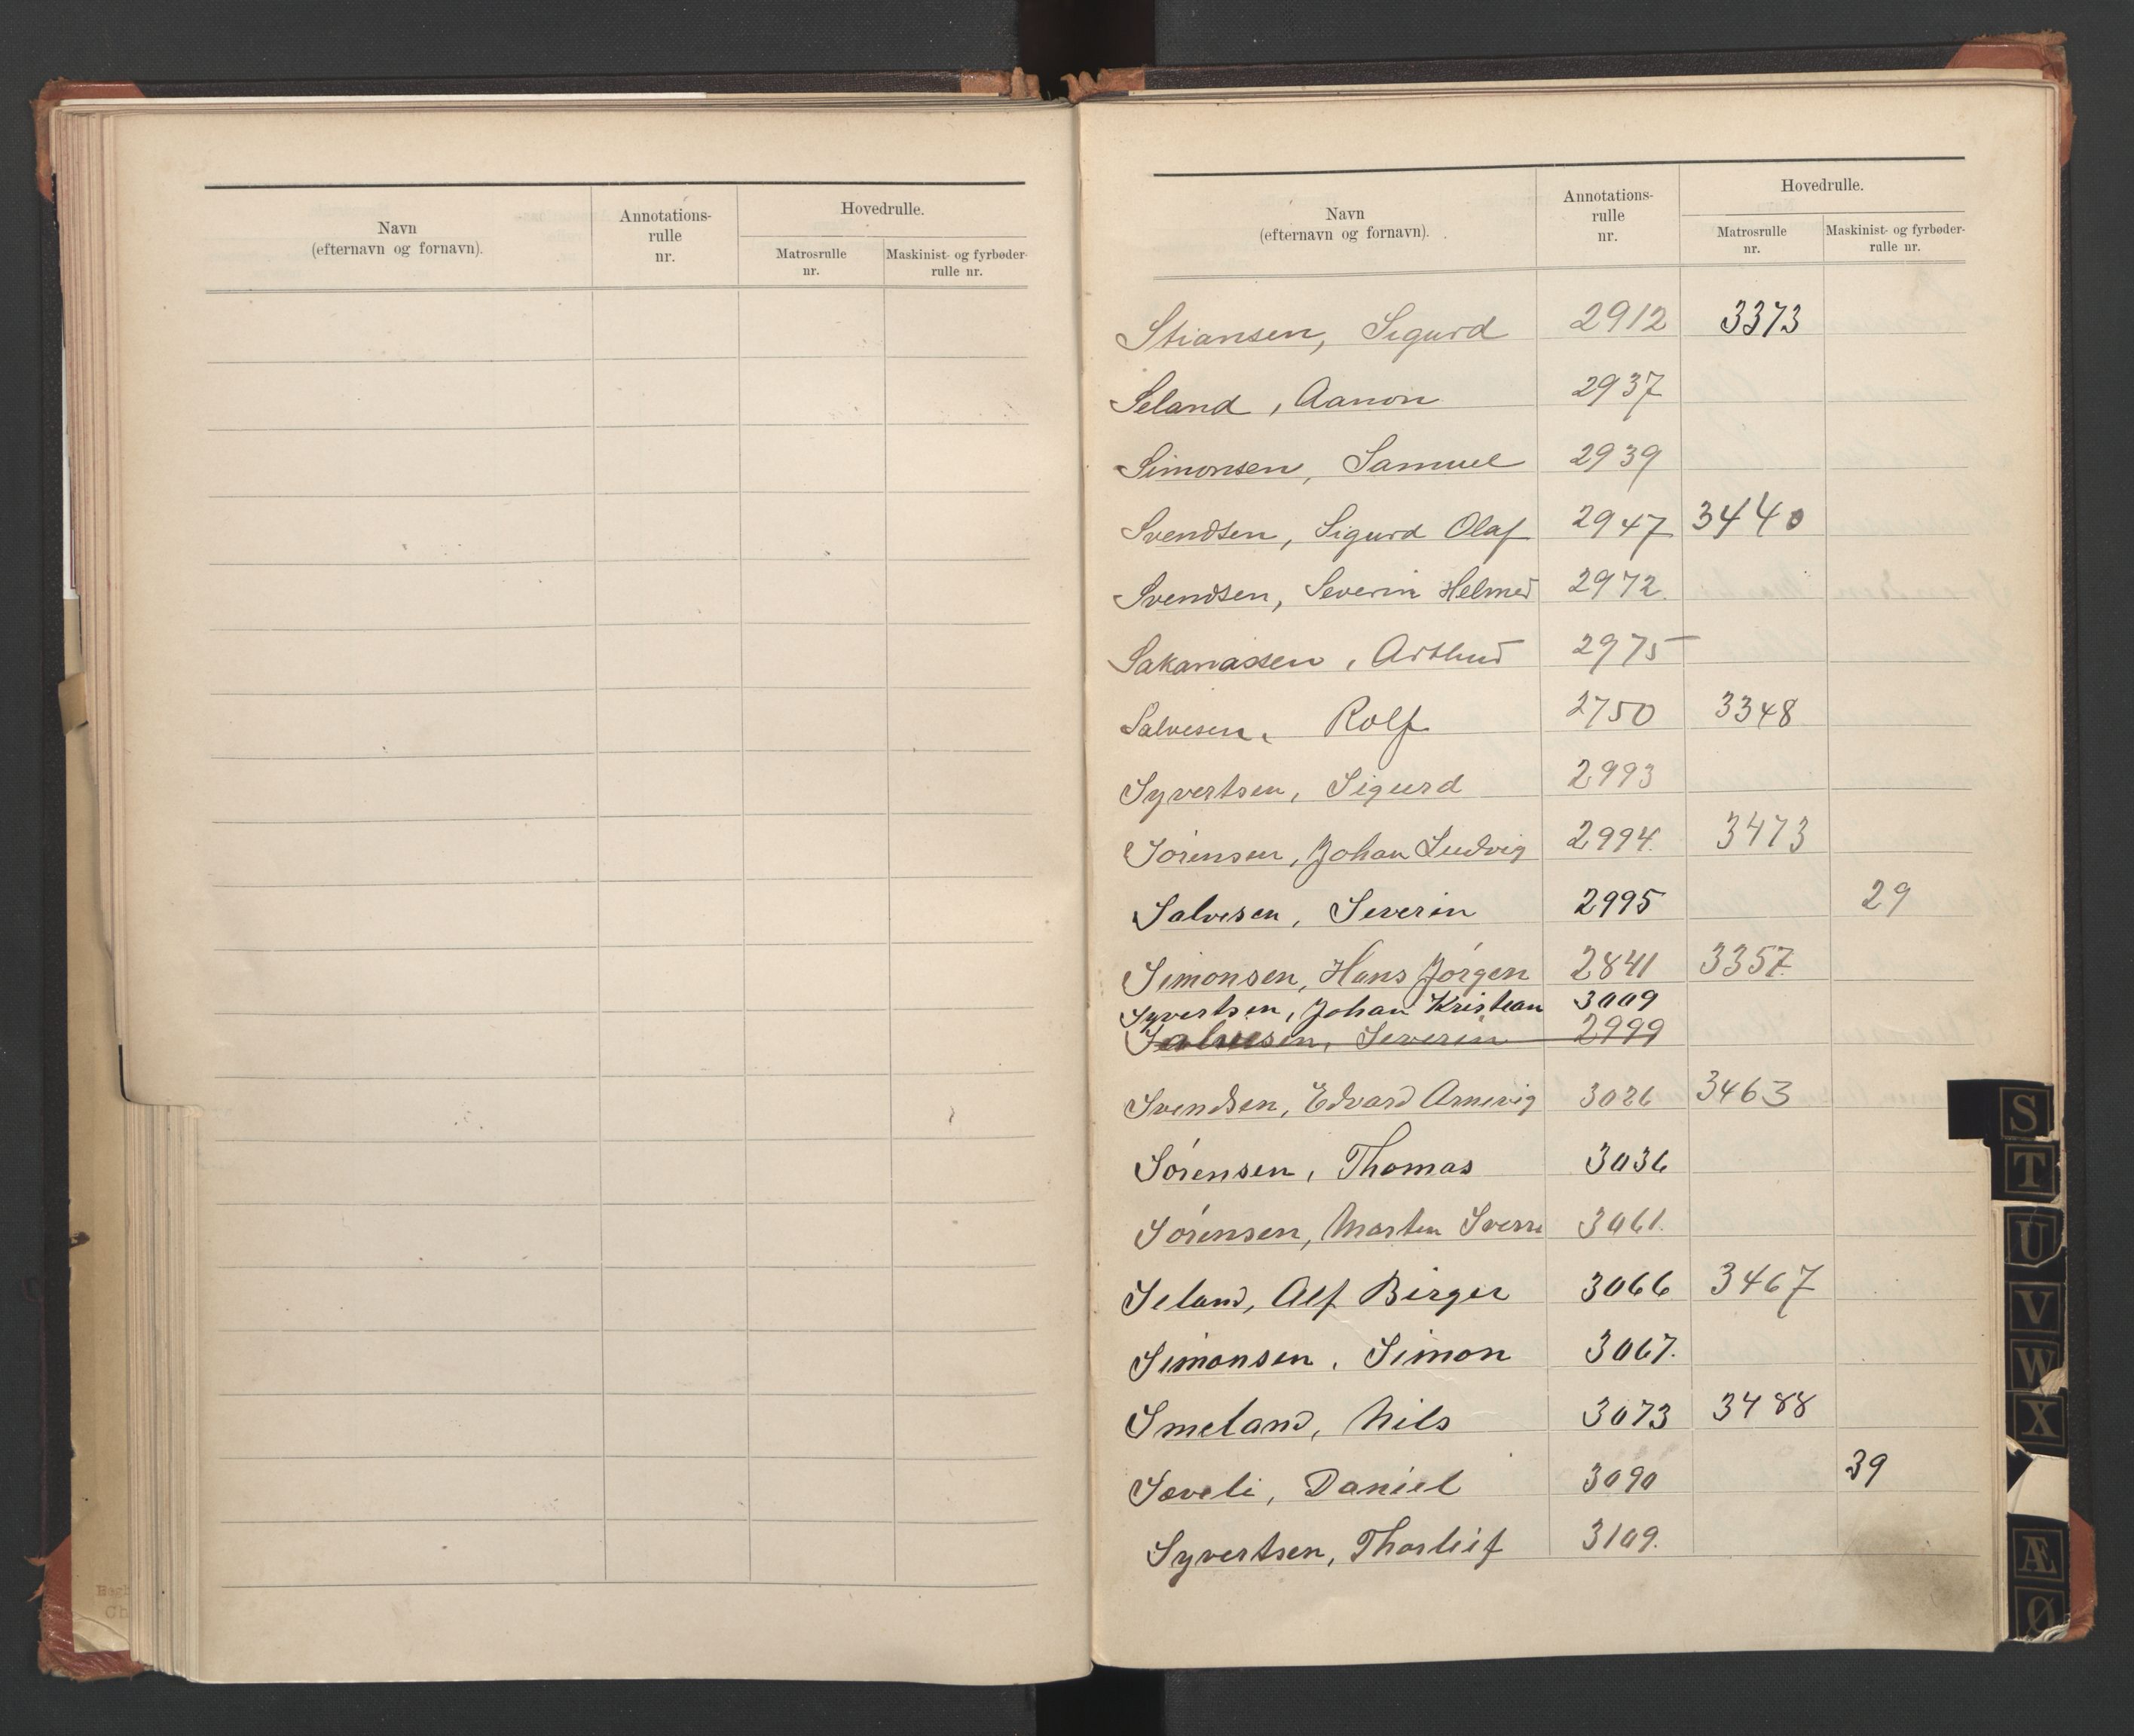 Navn
(efternavn og fornavn).
Annotations-
rulle
nr.
Hovedrulle.
Matrosrulle
nr.
Maskinist- og fyrbøder-
rulle nr.
Navn
(efternavn og fornavn).
Annotations-
rulle
nr.
Hovedrulle.
Matrosrulle
nr.
Maskinist- og fyrbøder-
rulle nr.
Stiansen, Sigurd 2912 3373
Seland, Aanon 2937
Simonsen, Samuel 2939
Svendsen, Sigurd Olaf 2947 3440
Svendsen, Severin Helmer 2972.
Sakariassen, Arthur 2975
Salvesen, Rolf 2750 3348
Syvertsen, Sigurd 2993
Sørensen, Johan Ludvig 2994. 3473
Salvesen, Severin 2995 29
Simonsen, Hans Jørgen 2841 3357
Syvertsen, Johan Kristian 3009
Salvesen, Severin 2999
Svendsen, Edvard Arnevig 3026 3463
Sørensen, Thomas 3036
Sørensen, Morten Sverre 3061.
Seland, Alf Birger 3066 3467
Simonsen, Simon 3067.
Smeland, Nils 3073 3488
Søveli, Daniel 3090 39
Syvertsen, Thorleif 3109.
S
T
U
V
W
X
Æ
Ø